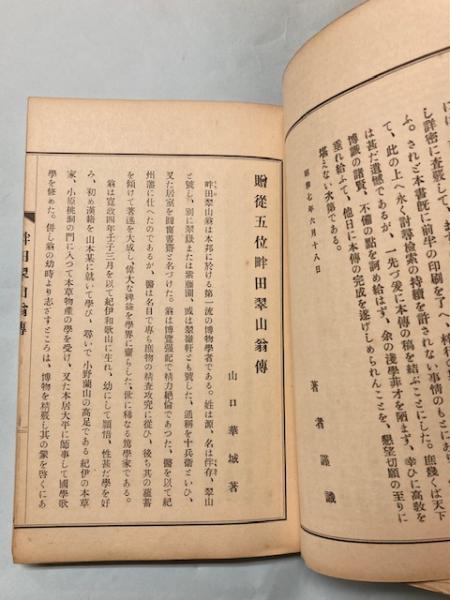 し詳密に査覈して、
ふ。されど本書既に前半の印刷を了へ、
て、此の上へ永く討尋檢索の持續を許されない事情のもとにあり
は甚だ遺憾であるが、一先づ爰に本傳の稿を結ぶことにした。庶幾くば天下
博識の諸賢、不備の點を訶め給はず、余の淺學菲才を陋まず、幸ひに高敎を
垂れ給ふて、他日に本傳の完成を遂げしめられんことを、懇望切願の至りに
堪えない次第である。
昭和七年六月十八日
著者謹識
贈從五位畔田翠山翁傳
山口華城著
畔田翠山翁は本邦に於ける第一流の博物學者である。姓は源、名は伴存、翠山
と號し、別に翠嶽または紫藤園、或は翠嶺軒とも號した。通稱を十兵衛といひ、
又た居室を
翁は博覽强記で精力絶倫であつた。醫を以て紀
州藩に仕へたのであるが、醫は名目で專ら庶物の精査攻究に從ひ、後ち其の蘊蓄
を傾けて著述を大成し、偉大な裨益を學界に齎らした、世に稀なる篤學家である。
翁は寬政四年壬子三月を以て紀伊和歌山に生れ、幼にして穎悟、性甚だ學を好
み、初め漢籍を山本某に就いて學び、尋いで小野蘭山の高足である紀伊の本草
家、小原桃洞の門に入つて本草物產の學を受け、又た本居大平に師事して國學歌
學を修めた。併し翁の幼時より志ざすところは、博物を精覈し其の蘊を啓くにあ
畔田翠山翁傳